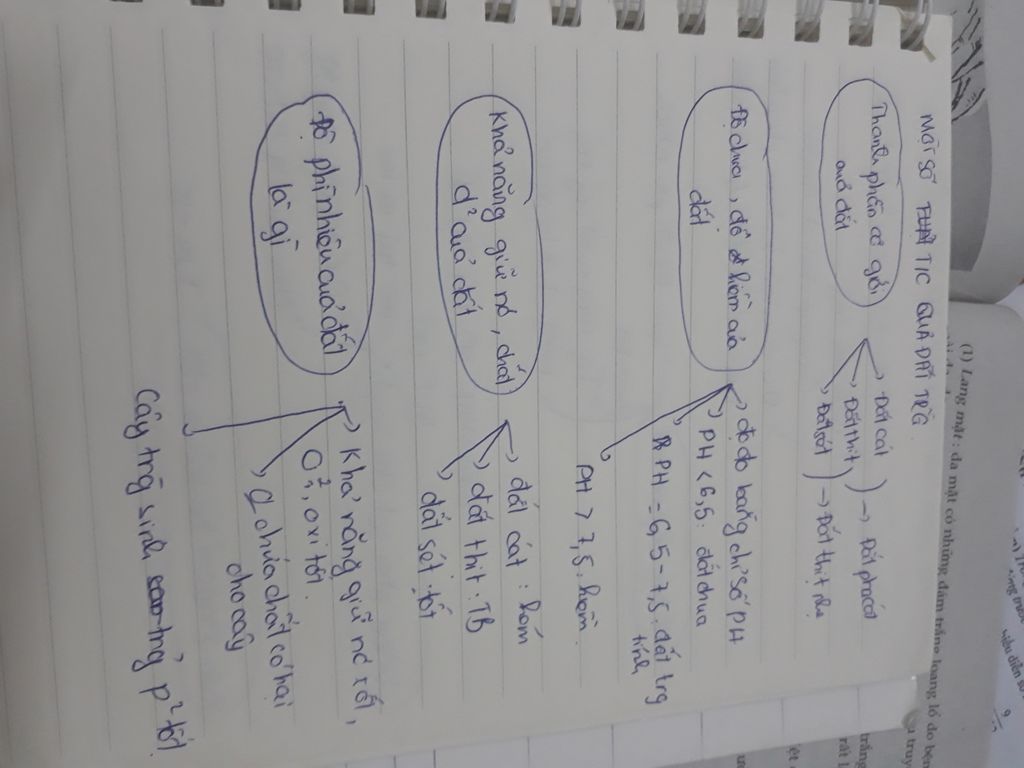 MỘT SỐ T/C QUẢ ĐẤT TRG
Thành phần cơ giới
quả đất
→ Đất cát
→ Đất thịt
→ Đất sét
→ Đất pha cát
→ Đất thịt nhẹ
Độ chua, độ kiềm của
đất
→ dọ đo bằng chỉ số PH
→ PH < 6,5: đất chua
PH = 6,5 - 7,5. đất trg
tính
PH > 7,5. kiềm
Khả năng giữ nc, chất
d² quả đất
→ đất cát: kém
→ đất thịt: TB
đất sét: tốt
Độ phì nhiêu quả đất
là gì
→ Khả năng giữ nc tốt,
O², oxi tốt.
→ chứa chất có hại
cho cây
Cây trồng sinh trg p² tốt.
(1) Lang mặt: da mặt có những đám trắng loang lổ do bện